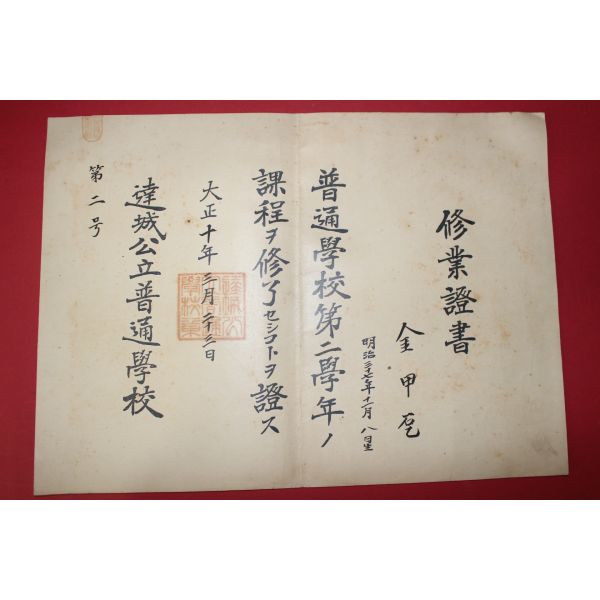 修業證書
金甲
明治三十七年十一月八日生
普通學校第二學年ノ
課程ヲ修了セシコトヲ證ス
大正十年三月二十三日
達城公立普通學校
第二号